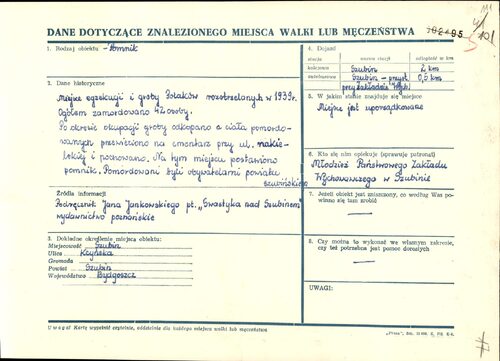 DANE DOTYCZĄCE ZNALEZIONEGO MIEJSCA WALKI LUB MĘCZEŃSTWA
1. Rodzaj obiektu - Pomnik
2. Dane historyczne
Miejsce egzekucji i groby Polaków rozstrzelanych w 1939r.
Ogółem zamordowano 42 osoby.
Po okresie okupacji groby odkopano a ciała pomordo-
wanych przewieziono na cmentarz przy ul. nakie-
lskiej i pochowano. Na tym miejscu postawiono
pomnik. Pomordowani byli obywatelami powiatu
szubińskiego
Źródła informacji
Podręcznik Jana Jankowskiego pt. „Swastyka nad Szubinem"
wydawnictwo poznańskie
3. Dokładne określenie miejsca obiektu:
Miejscowość Szubin
Ulica Kcyńska
Gromada
Powiat Szubin
Województwo Bydgoszcz
4. Dojazd
stacja nazwa stacji odległość w km
kolejowa Szubin 2 km
autobusowa Szubin - przyst. 0,5 km
przy Zakładzie Wych.
5. W jakim stanie znajduje się miejsce
Miejsce jest uporządkowane
6. Kto się nim opiekuje (sprawuje patronat)
Młodzież Państwowego Zakładu
Wychowawczego w Szubinie
7. Jeżeli obiekt jest zniszczony, co według Was po-
winno się tam zrobić
8. Czy można to wykonać we własnym zakresie,
czy też potrzebna jest pomoc dorosłych
UWAGI:
Uwaga! Kartę wypełnić czytelnie, oddzielnie dla każdego miejsca walki lub męczeństwa